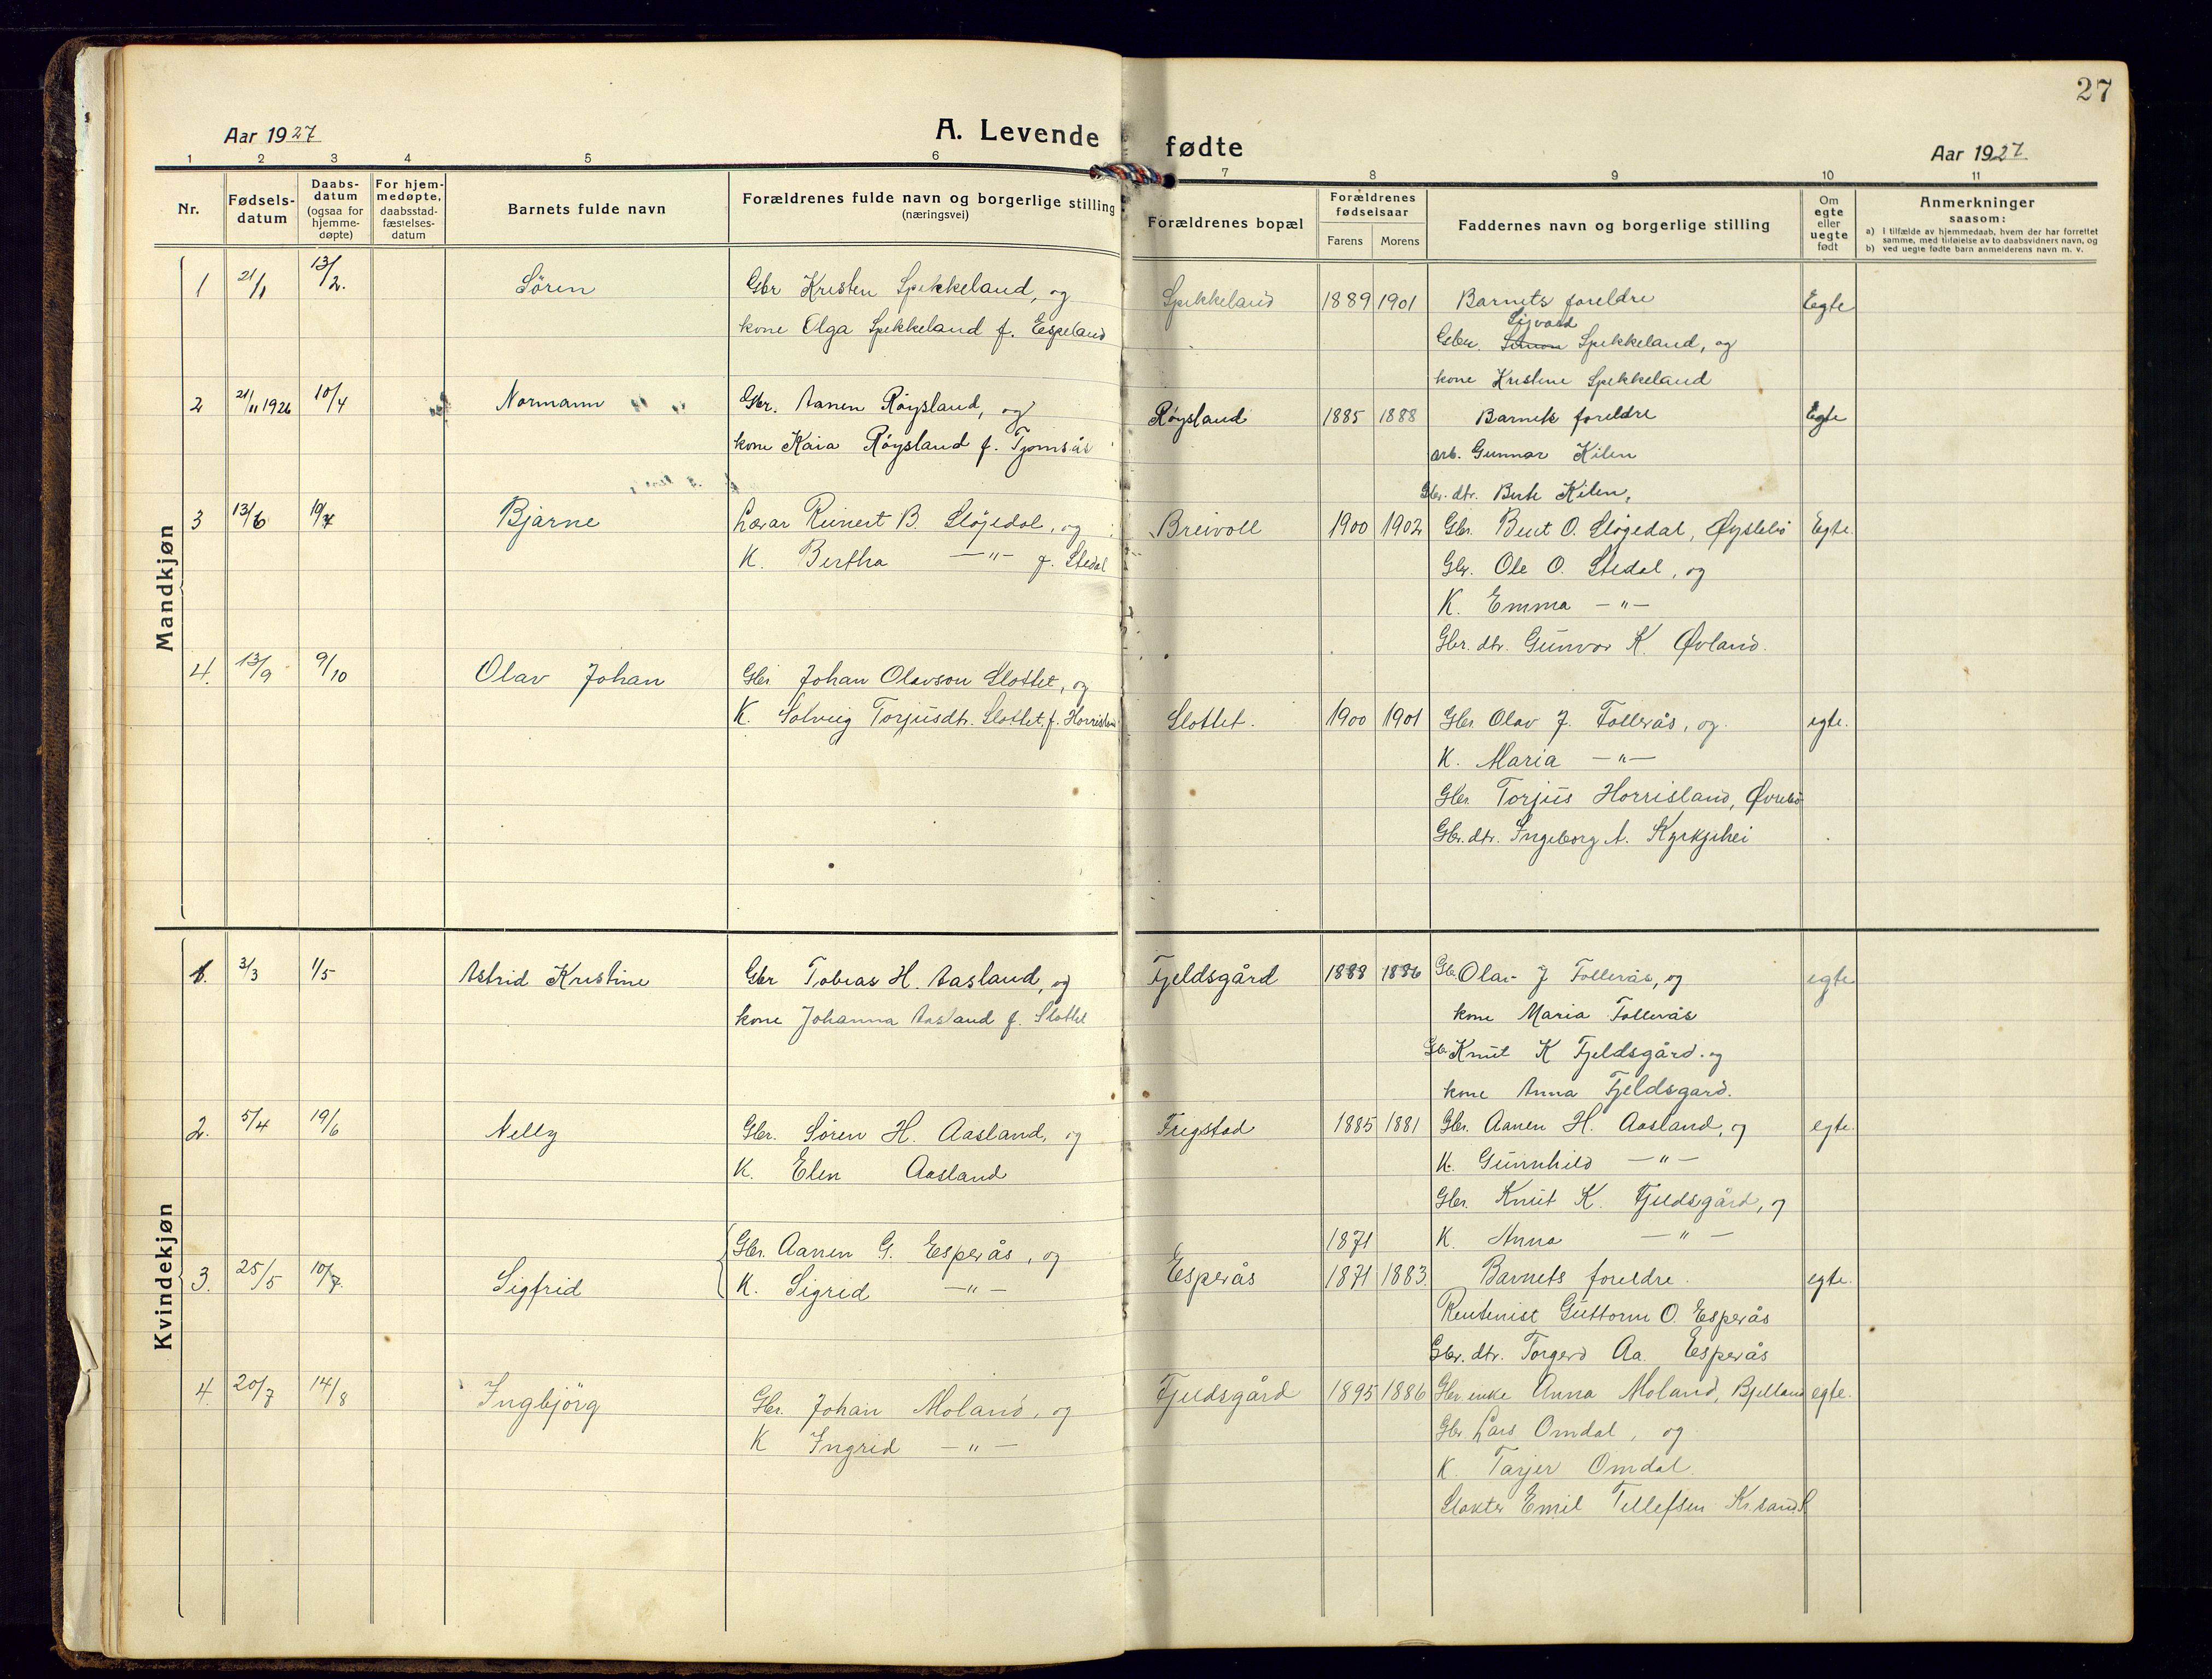 27
Aar 1927
A. Levende fødte
Aar 1927
1 2 3 4 5 6 7 8 9 10 11
Nr.
Fødsels-
datum
Daabs-
datum
(ogsaa for
hjemme-
døpte)
For hjem-
medøpte,
daabsstad-
fæstelses-
datum
Barnets fulde navn
Forældrenes fulde navn og borgerlige stilling
(næringsvei)
Forældrenes bopæl
Forældrenes
fødselsaar
Farens Morens
Faddernes navn og borgerlige stilling
Om
egte
eller
uegte
født
Anmerkninger
saasom:
a) i tilfælde av hjemmedaab, hvem der har forrettet
samme, med tilføielse av to daabsvidners navn, og
b) ved uegte fødte barn anmelderens navn m. v.
Mandkjøn
1 21/1 13/2. Søren Gbr Kristen Spikkeland, og Spikkeland 1889 1901 Barnets foreldre Egte
kone Olga Spekkeland f. Espeland
Sigvard
Gbr. Spikkeland, og
kone Kristine Spekkeland
2 21/11 1926 10/4 Normann Gbr. Aanen Røysland, og Røysland 1885 1888 Barnets foreldre Egte
kone Kaia Røysland f. Tjomsås
arb. Gunnar Kilen
Gbr. dtr. Berte Kilen,
3 13/6 19/7 Bjarne Lærar Reinert B. Sløgedal, og Breivoll 1900 1902 Gbr. Bent O. Sløgedal, Øyslebø Egte.
K. Bertha —"— f. Stedal
Gbr. Ole O. Stedal, og
K. Emma —"—
Gbr. dtr. Gunvor K. Øvland.
4. 13/9 9/10 Olav Johan Gbr Johan Olavson Slottet, og
K. Solveig Torjusdt. Slottet, f. Horrisland Slottet. 1900 1901 Gbr Olav J. Follerås, og egte.
K. Maria —"—
Gbr. Torjus Horrisland, Øvrebø
Gbr. dtr. Ingeborg A. Kyrkjehei
Kvindekjøn
1. 3/3 1/5 Astrid Kristine Gbr Tobias H. Aasland, og Fjeldsgård 1888 1886 Gbr Olav J Follerås, og egte
kone Johanna Aasland f. Slottet
kone Maria Follerås
Gbr Knut K Fjeldsgård. og
kone Anna Fjeldsgard.
2. 5/4 19/6 Nelly Gbr. Søren H. Aasland, og Frigstad 1885 1881 Gbr. Aanen H. Aasland, og egte.
K. Elen Aasland
K. Gunnhild —"—
Gbr. Knut K. Fjeldsgård, og
1871 K. Anna —"—
Gbr. Aanen G. Esperås, og
3. 25/5 10/7. Sigfrid K. Sigrid —"— Esperås 1871 1883. Barnets foreldre. egte.
Rentenist Guttorm O. Esperås
Gbr. dtr. Torgerd Aa. Esperås
4. 20/7 14/8 Ingbjörg Gbr. Johan Moland, og Fjeldsgård 1895 1886 Gbr enke Anna Moland, Bjelland egte.
K Ingrid —"—
Gbr Lars Omdal, og
K. Tarjer Omdal.
Slakter Emil Tellefsen Krsand S